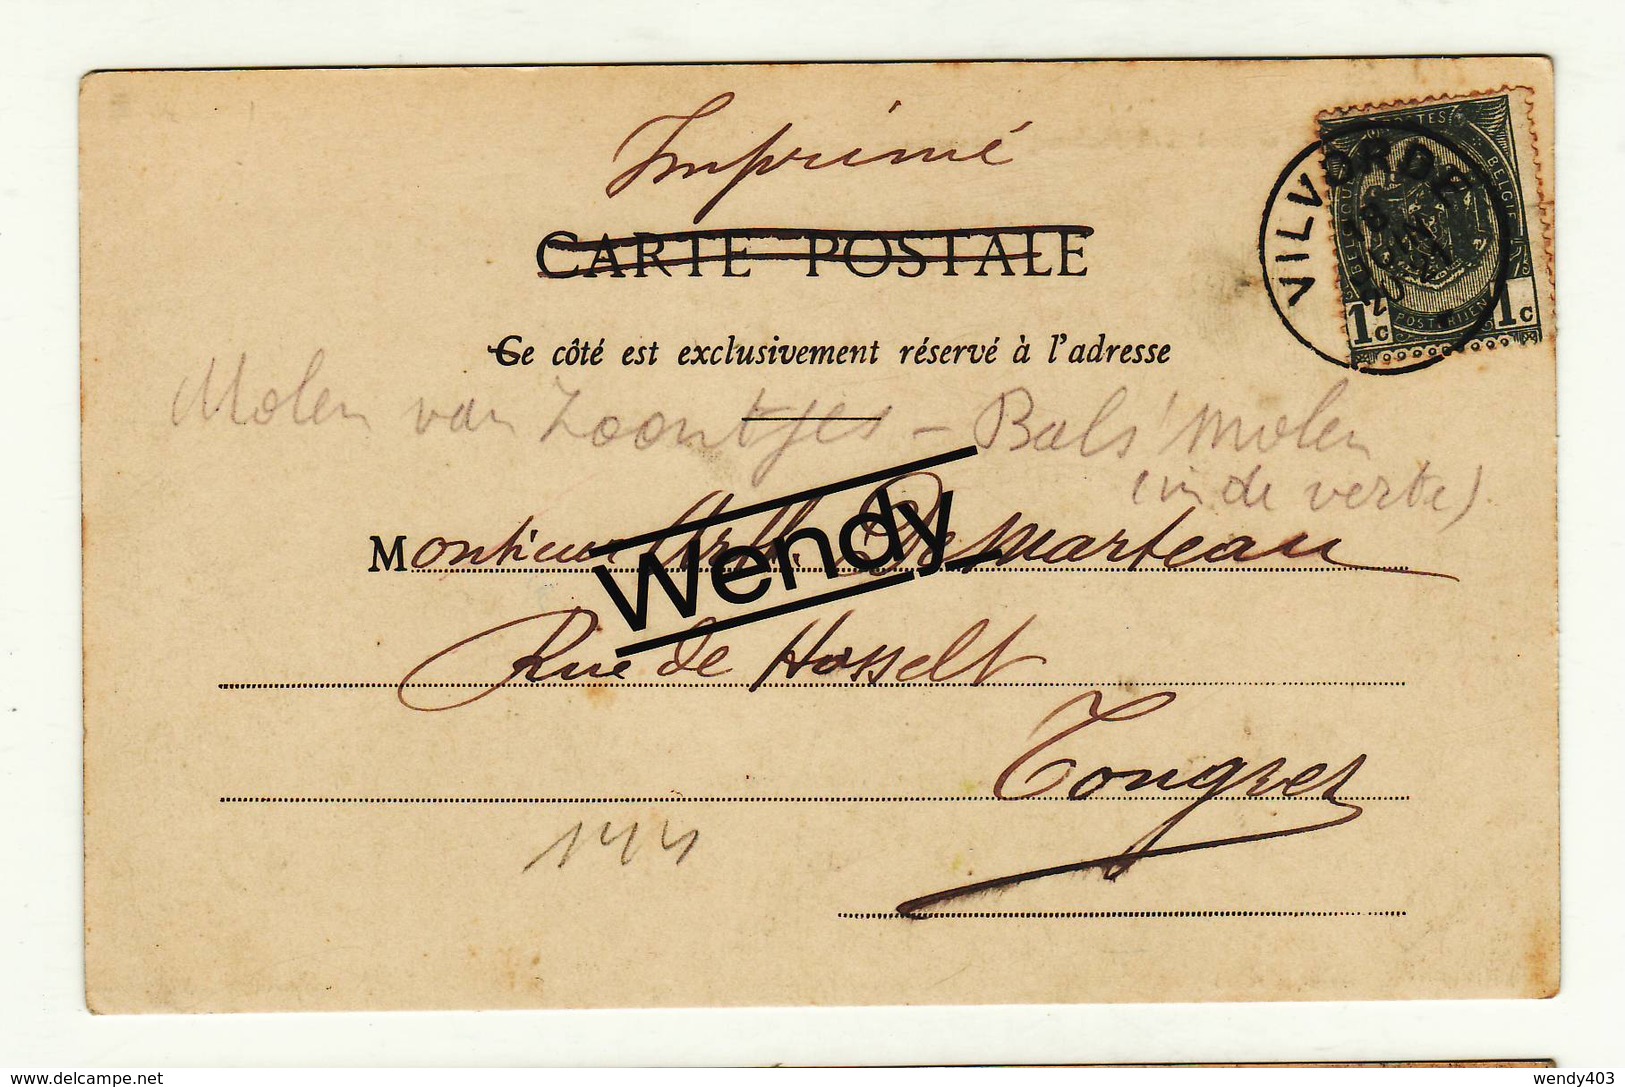 Imprimé
CARTE POSTALE
VILVORDE
POSTES
BELGIQUE
BELGIE
POSTERIJEN
1c 1c
Ce côté est exclusivement réservé à l'adresse
Molen van Zoontjes - Bals' molen
(in de verte)
Monsieur Arth. De Marteau
Wendy
Rue de Hasselt
Tongres
144
www.delcampe.net
wendy403